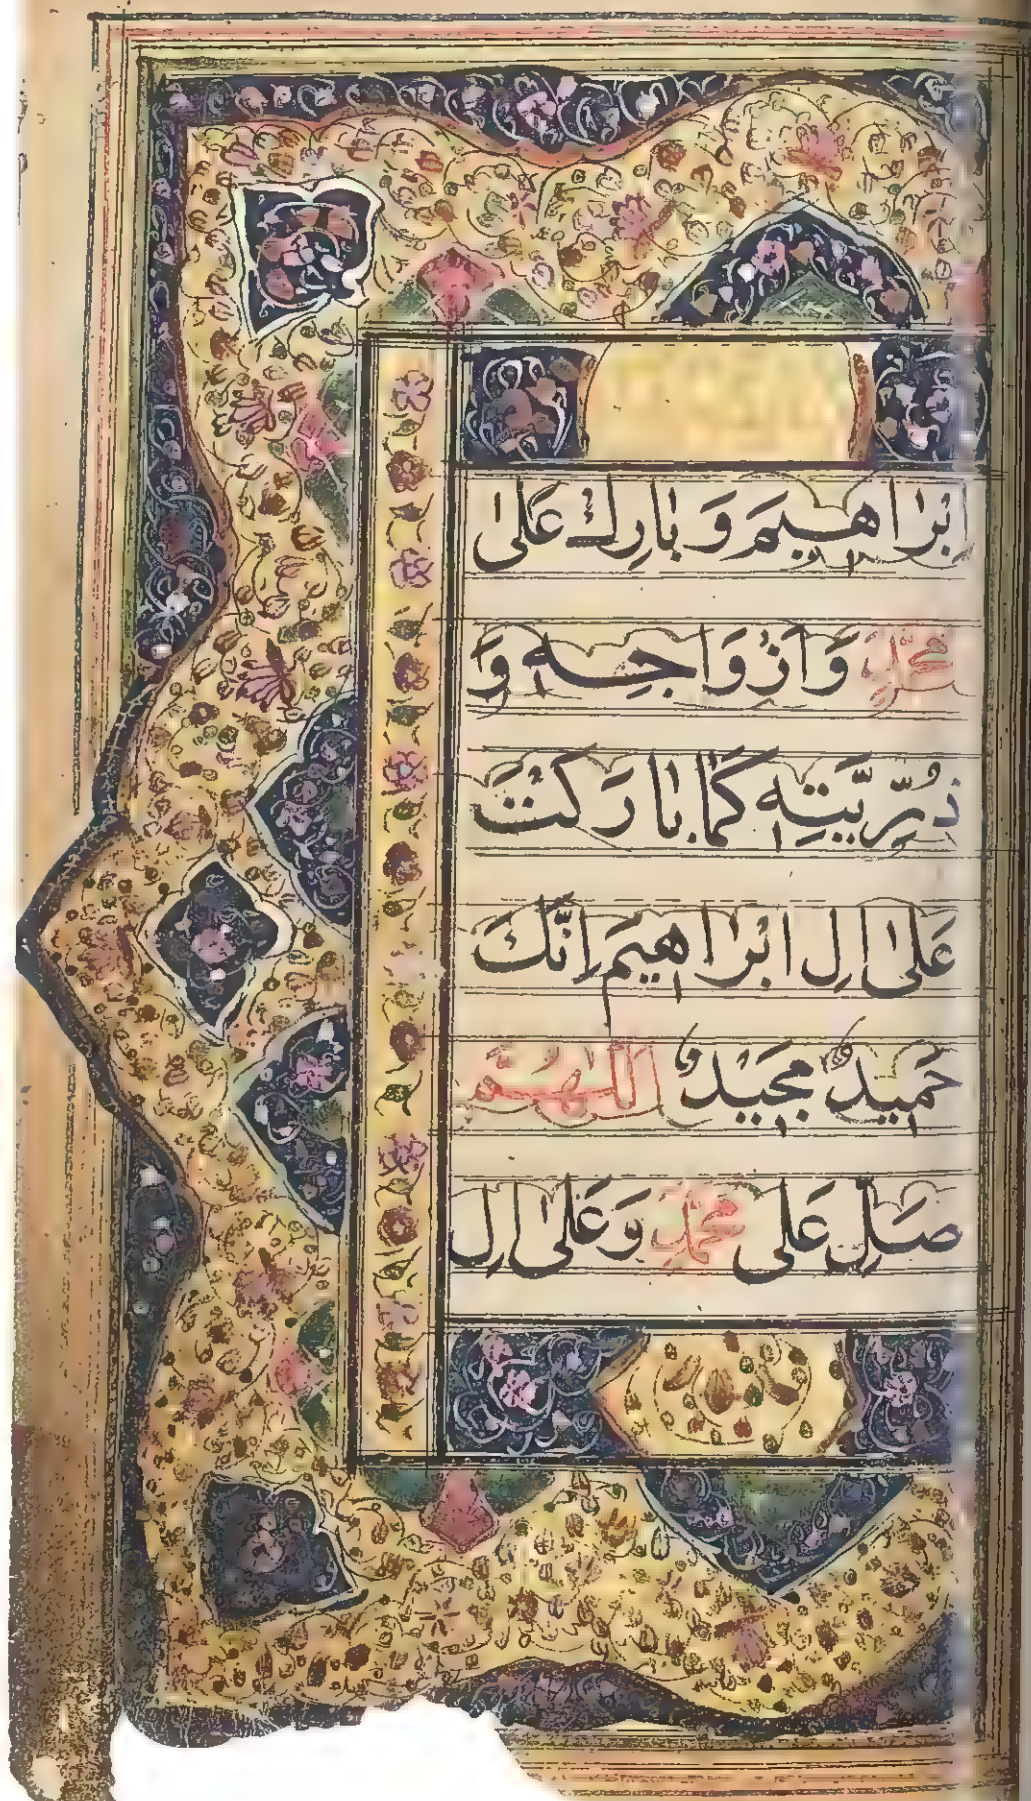 اِبْرَاهِيْمَ وَبَارِكْ عَلٰى
مُحَمَّدٍ وَاَزْوَاجِهٖ وَ
ذُرِّيَّتِهٖ كَمَا بَارَكْتَ
عَلٰى اٰلِ اِبْرَاهِيْمَ اِنَّكَ
حَمِيْدٌ مَجِيْدٌ اَللّٰهُمَّ
صَلِّ عَلٰى مُحَمَّدٍ وَعَلٰى اٰلِ